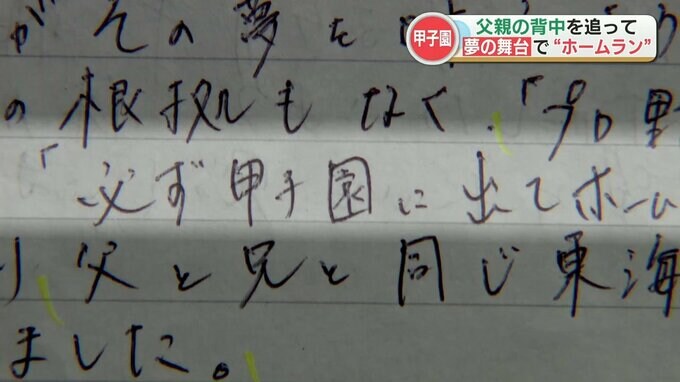 甲子園
父親の背中を追って
夢の舞台で“ホームラン”
がその夢を
の根拠もなく、「プロ野
「必ず甲子園に出てホーム
り父と兄と同じ東海
ました。